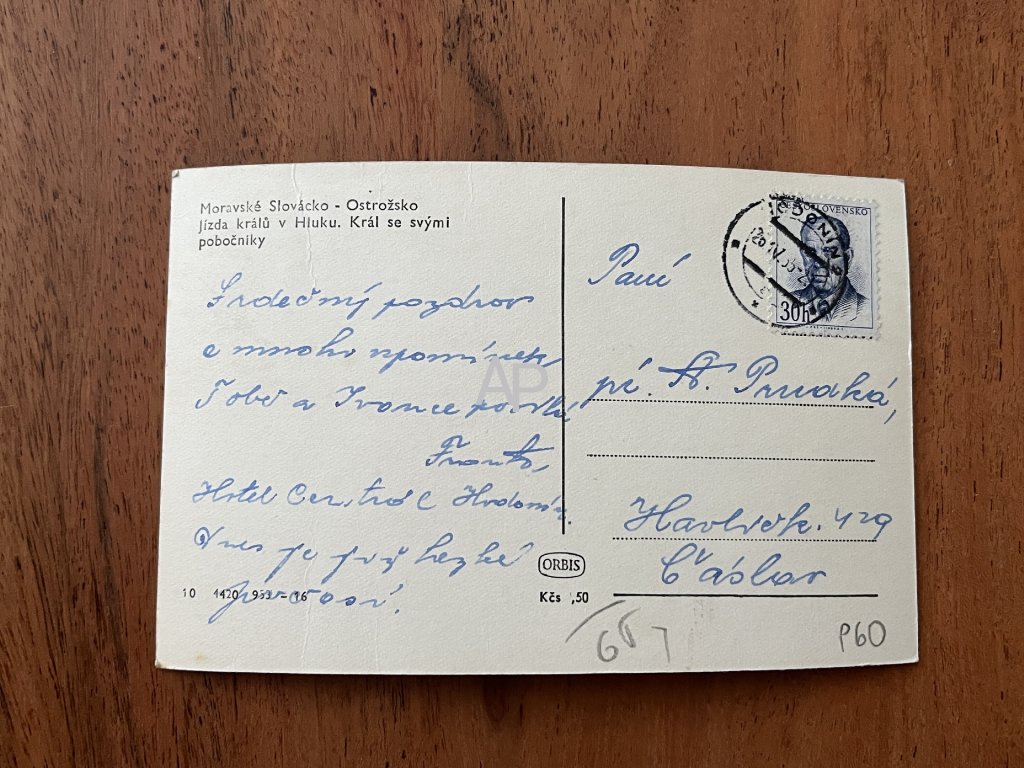 Moravské Slovácko - Ostrožsko
Jízda králů v Hluku. Král se svými
pobočníky
Srdečný pozdrav
a mnoho vzpomínek
Tobě a Ivance posílá
Hotel Centrál Hodonín.
Dnes je již hezké
počasí.
10 1420 953 - 16
ORBIS
Kčs ,50
ČESKOSLOVENSKO
30h
HODONÍN 2
Paní
pí. A.
Havlíčk. 429
Čáslav
P60
AP